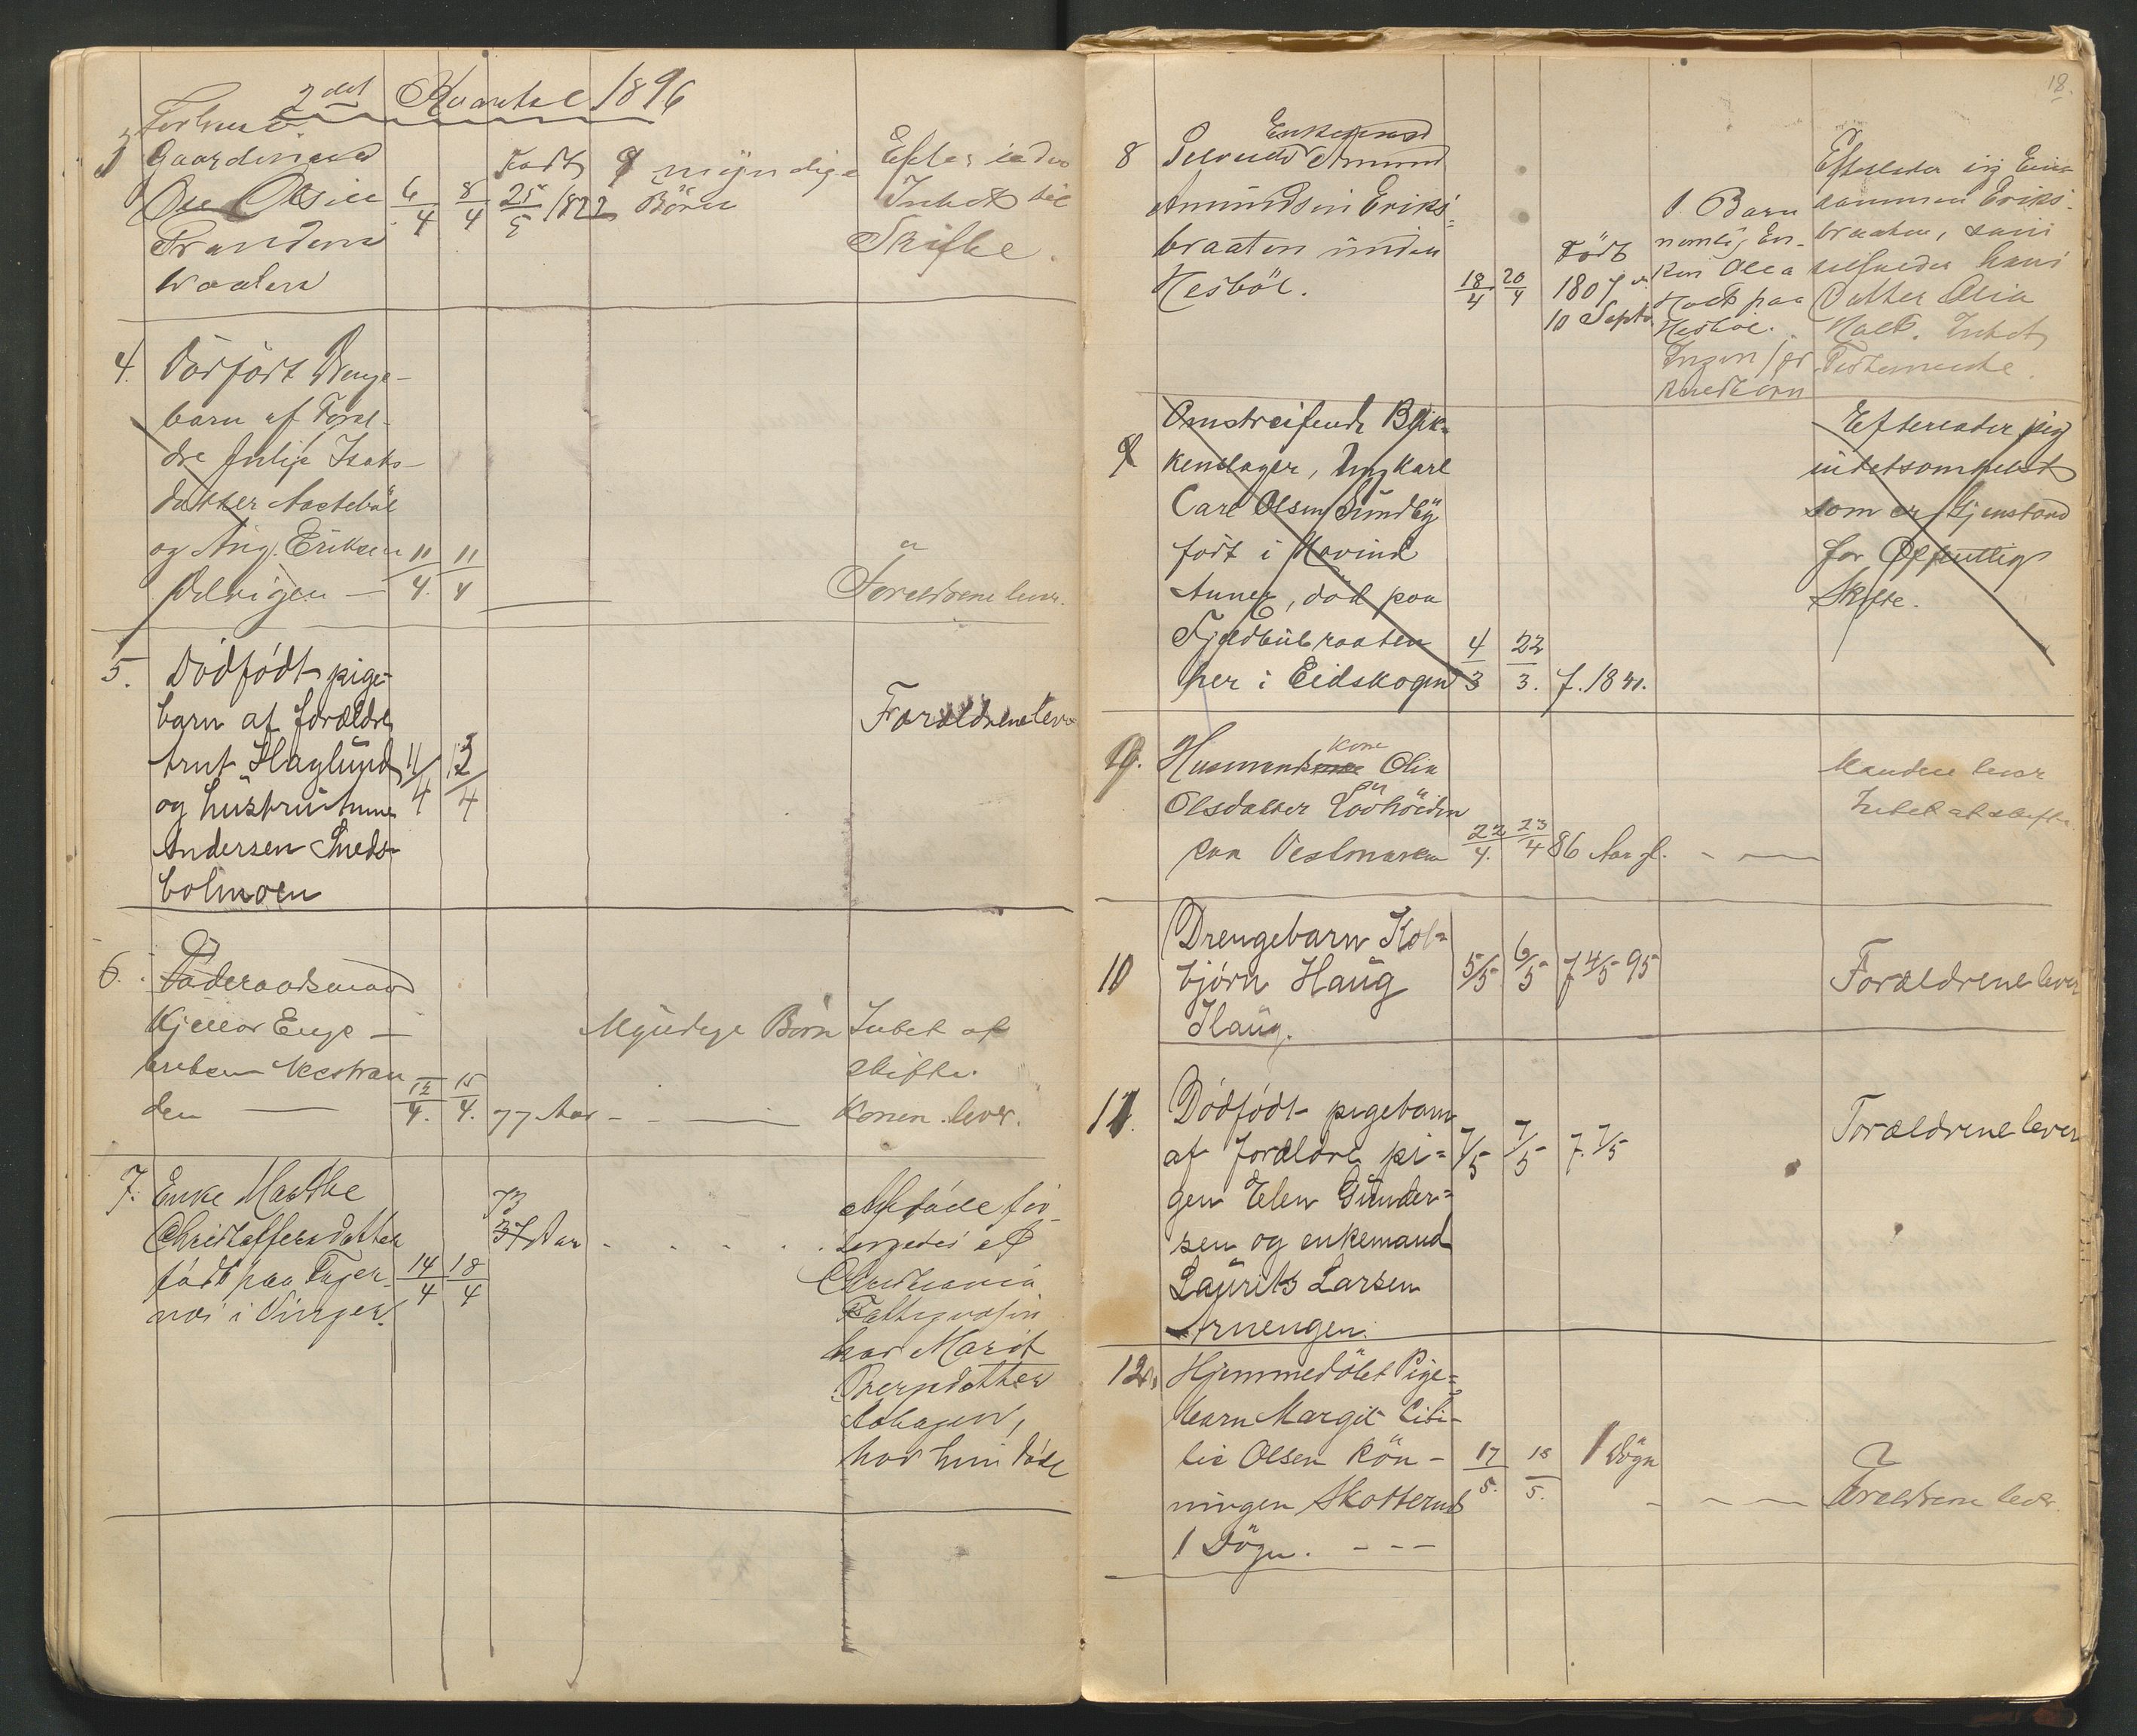 2det Kvartal 1896
3 Forhens.
Gaardmand
Ole Olsen
Tranderud
Waaler
6/4 8/4
Født 25/5 1822
9 myndige
Børn
Efterlader
Intet til
Skifte.
4. Dødfødt Drenge-
barn af Foræl-
dre Julie Isaks-
datter Aastebøl
og Aug. Eriksen
11/4. 11/4
Forældrene lever.
5. Dødfødt pige-
barn af forældre
Arnt Haglund
og hustru Anne
Andersen Sneds-
bølmoen
11/4 13/4
Forældrene lever
6. Føderaadsmand
Kjeller Enge-
bretsen Vestran
den —
12/4. 15/4. 77 Aar - - —
Myndige Børn
Intet at
skifte.
Konen lever.
7. Enke Marthe
Christoffersdatter
født paa Tyger-
næs i Vinger.
14/4 18/4
73
37 Aar - - - -
Afdøde for-
sørgedes af
Christiania
Fattigvæsen
hos Marit
Aabogen,
hos hun døde
18.
8 Enkemand
Amund
Amundsen Eriks-
braaten under
Nesbøl.
18/4 20/4
Født
1807
10 Septr
1 Barn
nemlig En-
ken Olea
Holt paa
Nesbøl.
Ingen Sær
kuldbørn
Efterlader sig Eien-
dommen Eriks-
braaten, som
tilfalder hans
Datter Olia
Holt. Intet
Testemente.
9 Omstreifende Blik-
kenslager, Ungkarl
Carl Olsen Sundby
født i Hovind
Annex, død paa
Fjeldbübraaten
her i Eidskogen
4/3 22/3. f. 1841.
Efterlader sig
intetsomhelst
som er Gjenstand
for Offentlig
Skifte.
9. Husmands kone Olia
Olsdatter
paa Vestmarken
22/4. 23/4 86 Aar gl. - —
Manden lever
Intet at skifte.
10 Drengebarn Kol-
bjørn Haug
Haug.
5/5 6/5 f 4/5 95
Forældrene lever
11. Dødfødt pigebarn
af forældre pi-
gen Elen Gunder-
sen og enkemand
Laurits Larsen
Arnengen.
7/5 7/5 f. 7/5
Forældrene lever
12. Hjemmedøbt Pige-
barn Margit Cibi-
lie Olsen Røn-
ningen Skotterud
1 Døgn. - - -
17/5. 18/5. 1 Døgn
- - —
Forældrene lever.